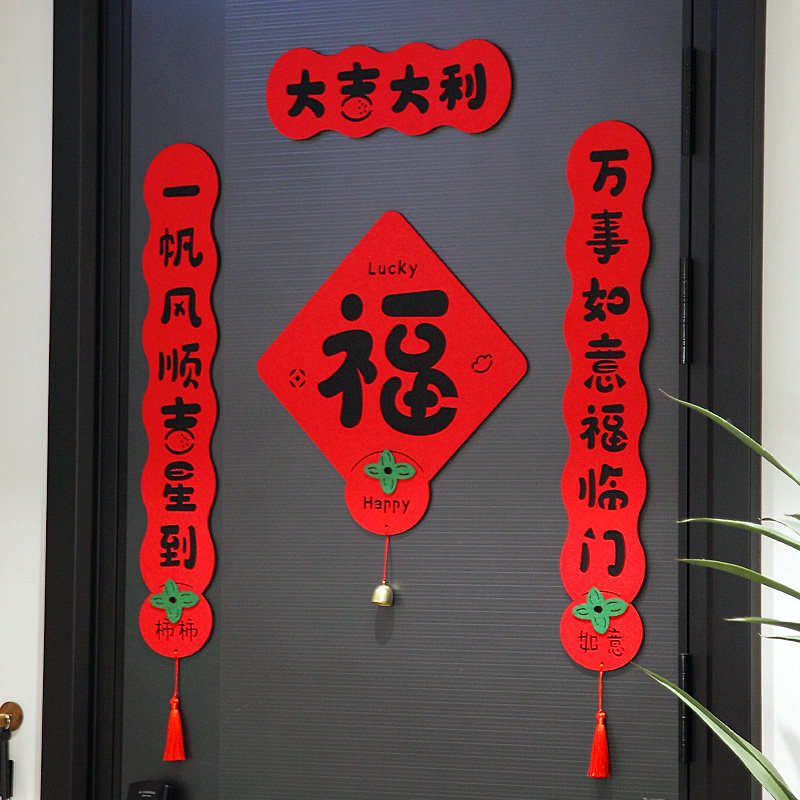 大吉大利
万事如意福临门
如意
一帆风顺吉星到
柿柿
Lucky
福
Happy